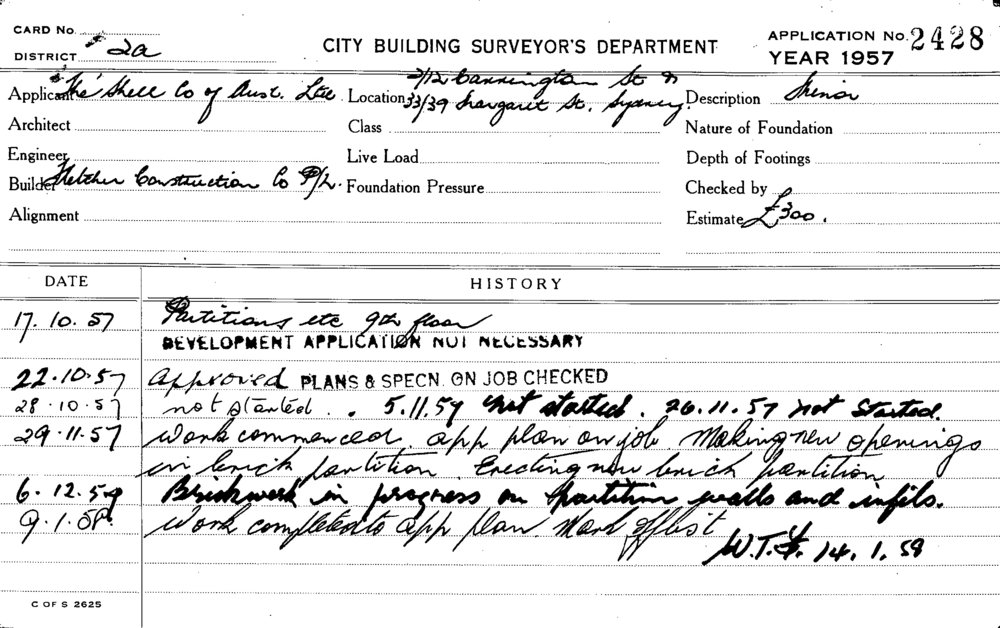 CARD No.
DISTRICT 2a
CITY BUILDING SURVEYOR'S DEPARTMENT
APPLICATION No. 2428
YEAR 1957
Applicant The Shell Co of Aust. Ltd
Location 2/12 Carrington St &
33/39 Margaret St. Sydney
Description Minor
Architect
Class
Nature of Foundation
Engineer
Live Load
Depth of Footings
Builder Fletcher Construction Co P/L.
Foundation Pressure
Checked by
Alignment
Estimate £300.
DATE
HISTORY
17.10.57 Partitions etc 9th floor
DEVELOPMENT APPLICATION NOT NECESSARY
22.10.57 Approved PLANS & SPECN. ON JOB CHECKED
28.10.57 not started. . 5.11.57 not started. 26.11.57 not started.
29.11.57 Work commenced. app plan on job Making new openings
in brick partition Erecting new brick partition
6.12.57 Brickwork in progress on partition walls and infils.
9.1.58. Work completed to app plan. Mark off list
14.1.58
C OF S 2625